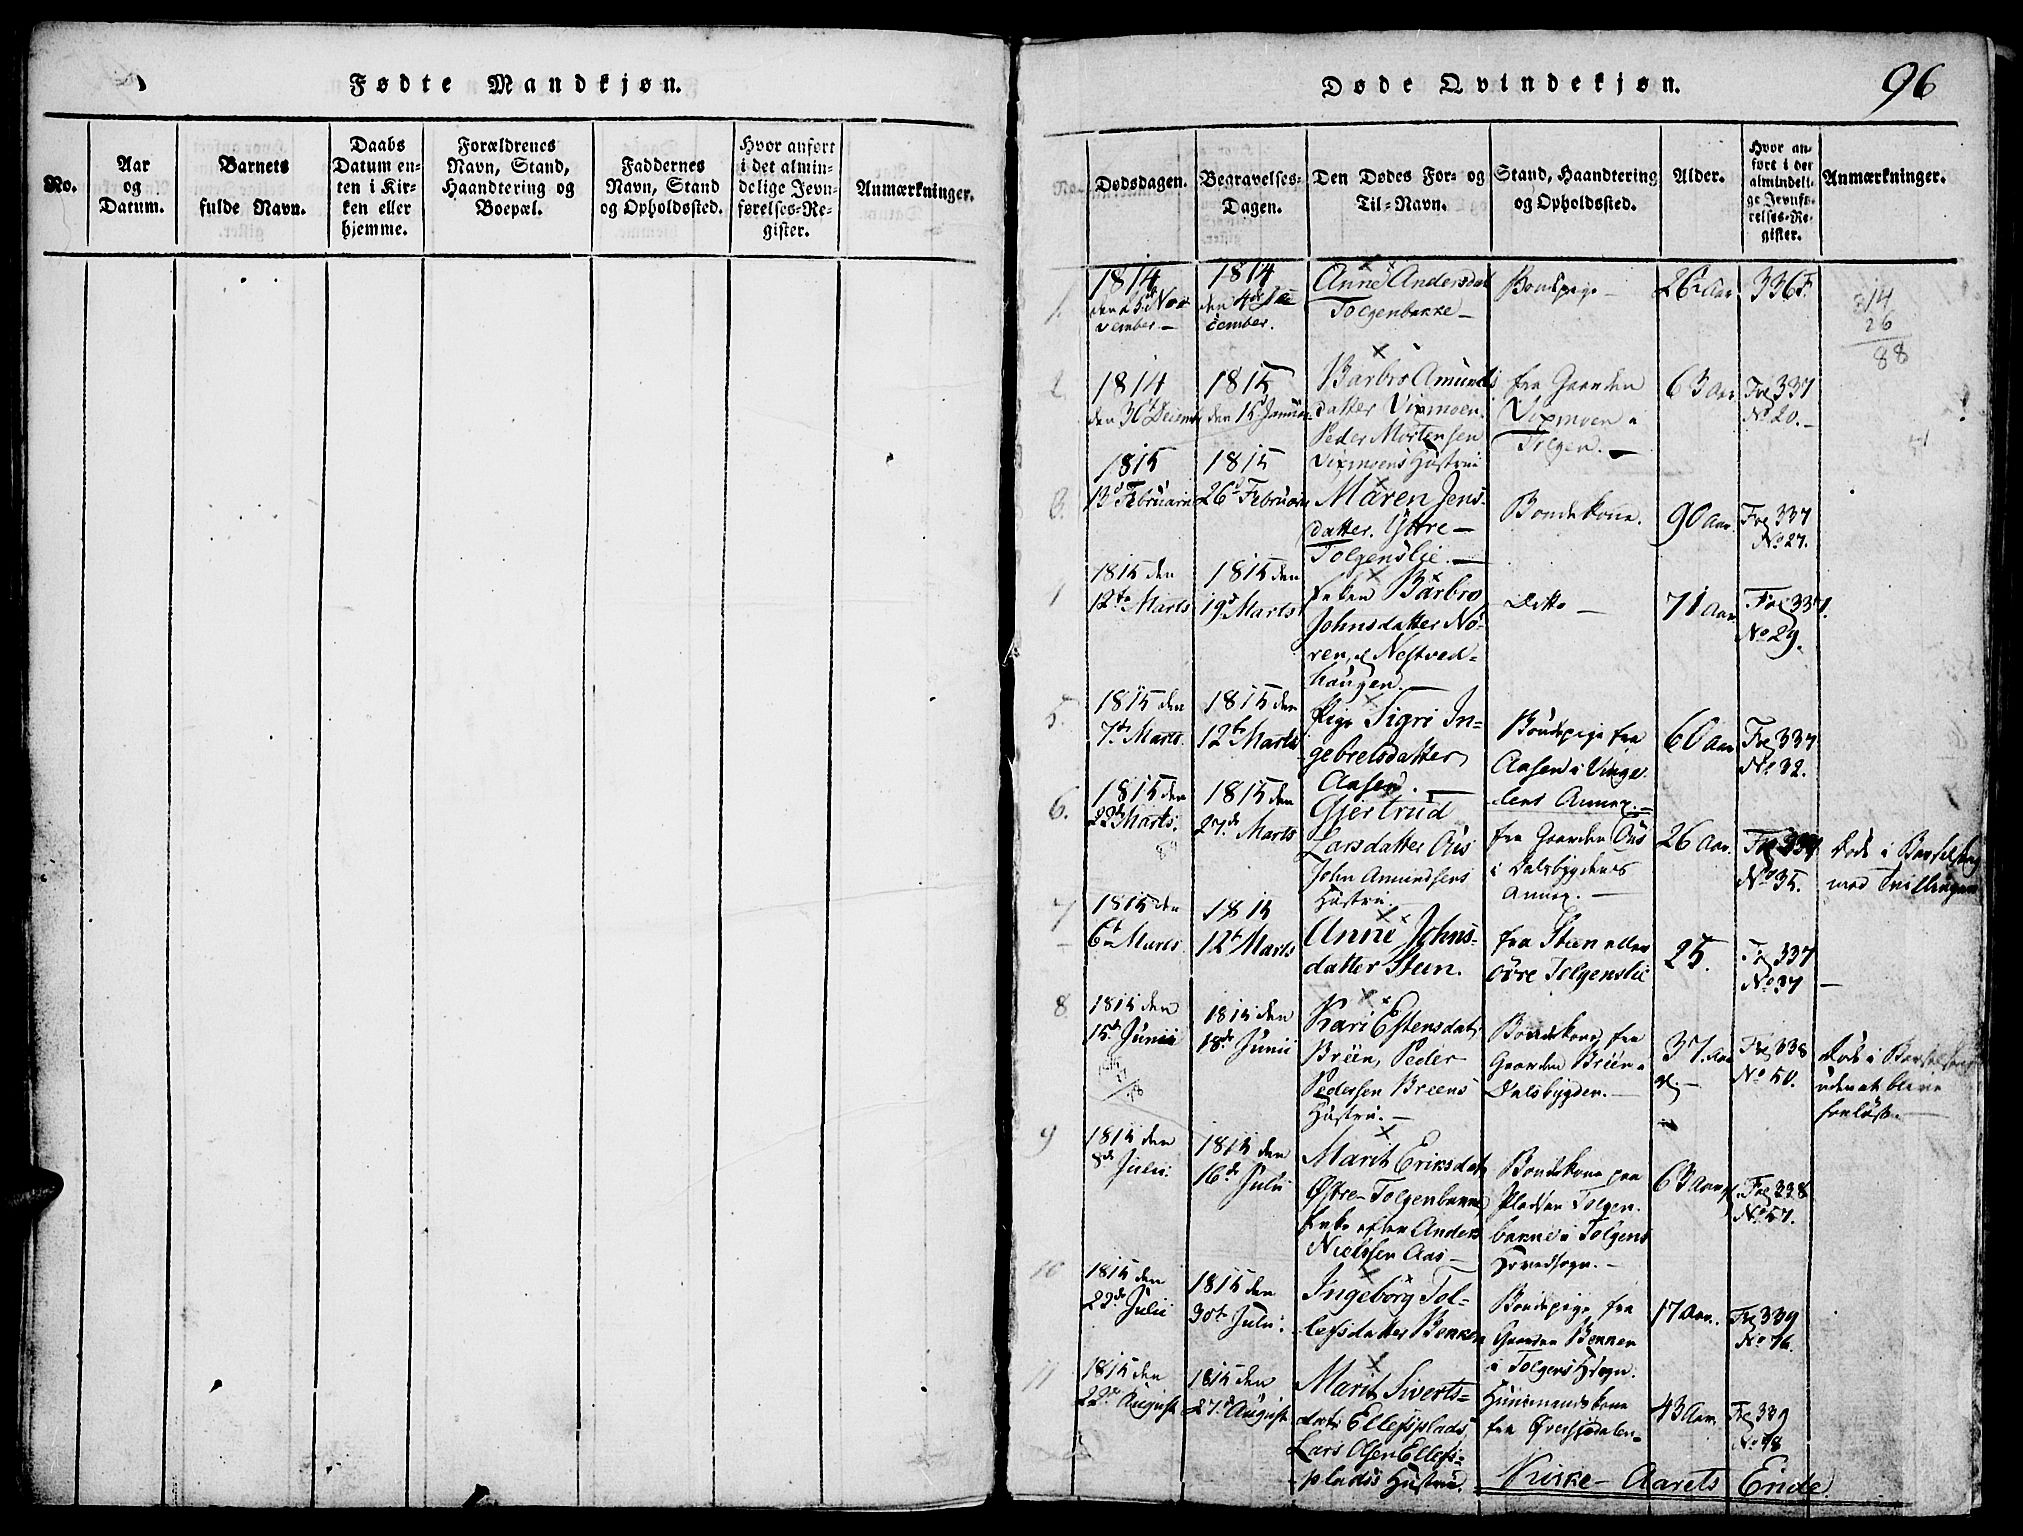 Fødte Mandkjøn.
No.
Aar
og
Datum.
Barnets
fulde Navn.
Daabs
Datum en-
ten i Kir-
ken eller
hjemme.
Forældrenes
Navn, Stand,
Haandtering og
Boepæl.
Faddernes
Navn, Stand
og Opholdssted.
Hvor anført
i det almin-
delige Jevn-
førelses-Re-
gister.
Anmærkninger.
Døde Qvindekjøn.
96
No.
Dødsdagen.
Begravelses-
Dagen.
Den Dødes For- og
Til-Navn.
Stand, Haandtering
og Opholdssted.
Alder.
Hvor an-
ført i det
almindeli-
ge Jevnfø-
relses-Re-
gister.
Anmærkninger.
1.
1814
Nov
vember
1814
den 4de De
cember.
Anne Andersdat
Tolgenbakke
Bondepige
26 Aar
336
14
26
88
2.
1814
den 30 Decemb
1815
den 15 Januar
Barbro Amunds
datter Vixmoen
Peder Mortensen
Vixmoens Hustrue
fra Gaarden
Vixmoen i
Tolgen.
63 Aar
Fol 337
No 20.
3.
1815
13de Februarii
1815
26de Februarii
Maren Jens
datter Yttre
Tolgenslie
Bondekone.
90 Aar.
Fol 337
No 27.
1815 den
12te Marts
1815 den
19de Marts
Enken Barbro
Johnsdatter No-
ren, Nestved-
haugen.
Ditto
71 Aar
Fol 337.
No 29.
5.
1815 den
7de Marts.
1815 den
12te Marts
Pige Sigri In-
gebretsdatter
Aasen.
Bondepige fra
Aasen i Vinge
lens Annex.
60 Aar
Fol 337
No 32.
6.
1815 den
22de Marts.
1815 den
27de Marts
Gjertrud
Larsdatter Aus
John Amundsens
Hustru.
fra Gaarden Aus
i Dalsbygdens
Annex.
26 Aar.
Fol 337
No 35.
Døde i Barselseng
med Tvillinger
7
1815 den
6te Marts
1815
12te Marts
Anne Johns-
datter Steen.
fra Steen eller
övre Tolgenslie
25.
Fol 337
No 37
8
1815 den
15de Junii
1815 den
18de Junii
Kari Estensdat,
Breen, Peder
Pedersen Breens
Hustru.
Bondekone fra
Gaarden Breen i
Dalsbygden.
37 Aar
Fol 338
No 50.
Døde i Barselseng
uden at blive
forløst.
9
1815 den
8de Julii
1815 den
16de Julii
Marit Eriksdat,
Østre Tolgenbakke
Enke efter Anders
Nielssen Aas
Bondekone paa
Pladsen Tolgen
bakke i Tolgens
Hovedsogn.
63 Aar
Fol 338
No 57.
10
1815 den
22de Julii
1815 den
30te Julii.
Ingeborg Tol-
lefsdatter Bekken
Bondepige fra
Gaarden Bekken
i Tolgens Hsogn.
17 Aar.
Fol 339
No 76.
11
1815 den
22de August
1815 den
27de August
Marit Siverts-
dat, Ellefsplads,
Lars Olsen Ellefs-
pladses Hustrue.
Huusmandskone
fra Øversjødalen
43 Aar.
Fol 339
No 78
Kirke-Aarets Ende